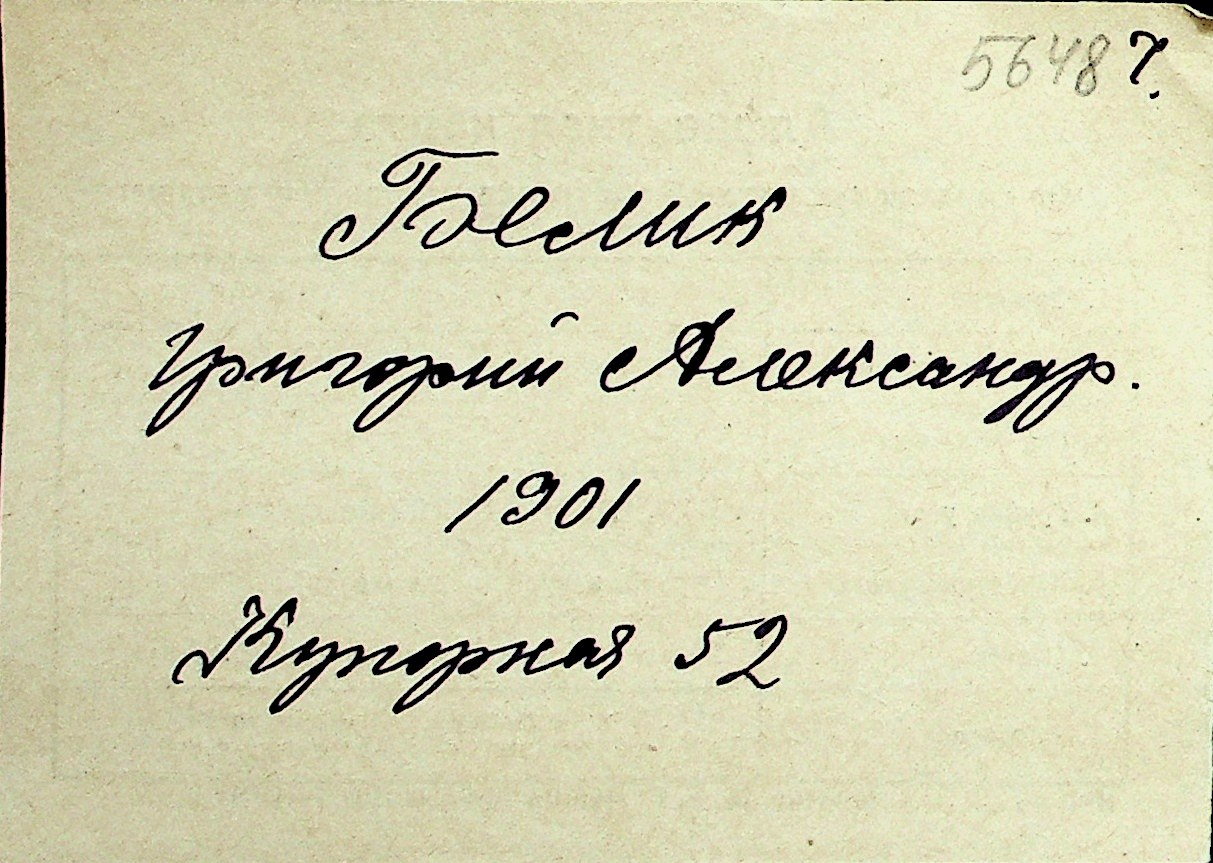 5648 7.
Белик
Григорий Александр.
1901
Купорная 52